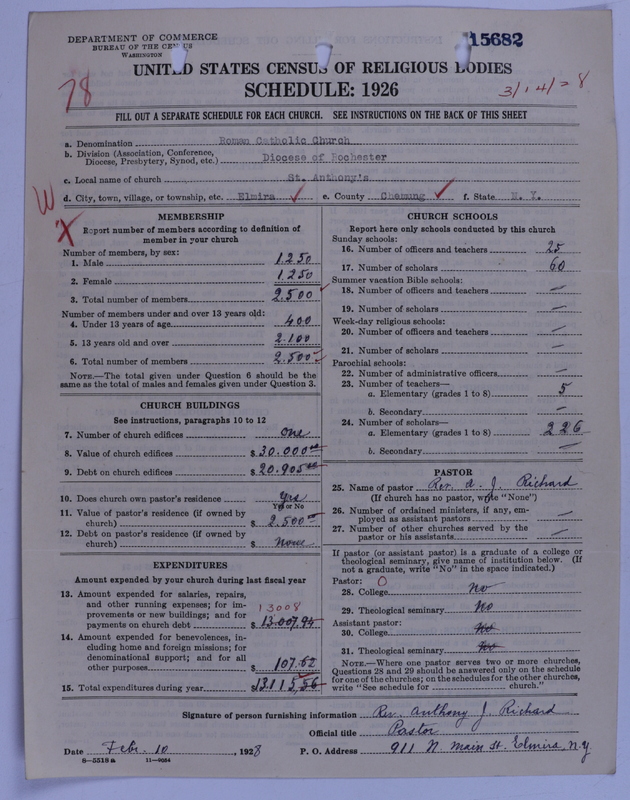 DEPARTMENT OF COMMERCE
BUREAU OF THE CENSUS
WASHINGTON
15682
78
UNITED STATES CENSUS OF RELIGIOUS BODIES
SCHEDULE: 1926
3/14/=8
FILL OUT A SEPARATE SCHEDULE FOR EACH CHURCH. SEE INSTRUCTIONS ON THE BACK OF THIS SHEET
a. Denomination Roman Catholic Church
b. Division (Association, Conference, Diocese, Presbytery, Synod, etc.) Diocese of Rochester
c. Local name of church St. Anthony's
d. City, town, village, or township, etc. Elmira e. County Chemung f. State N. Y.
W
X
MEMBERSHIP
Report number of members according to definition of
member in your church
Number of members, by sex:
1. Male 1250
2. Female 1250
3. Total number of members 2.500
Number of members under and over 13 years old:
4. Under 13 years of age 400
5. 13 years old and over 2.100
6. Total number of members 2.500
NOTE.—The total given under Question 6 should be the
same as the total of males and females given under Question 3.
CHURCH BUILDINGS
See instructions, paragraphs 10 to 12
7. Number of church edifices one
8. Value of church edifices $ 30.000 00
9. Debt on church edifices $ 20.905 00
10. Does church own pastor's residence Yes
Yes or No
11. Value of pastor's residence (if owned by
church) $ 2.500
12. Debt on pastor's residence (if owned by
church) $ none
EXPENDITURES
Amount expended by your church during last fiscal year
13. Amount expended for salaries, repairs,
and other running expenses; for im-
provements or new buildings; and for
payments on church debt $ 13.007.94
13008
14. Amount expended for benevolences, in-
cluding home and foreign missions; for
denominational support; and for all
other purposes $ 107.62
15. Total expenditures during year $ 13115,56
CHURCH SCHOOLS
Report here only schools conducted by this church
Sunday schools:
16. Number of officers and teachers 25
17. Number of scholars 60
Summer vacation Bible schools:
18. Number of officers and teachers —
19. Number of scholars —
Week-day religious schools:
20. Number of officers and teachers —
21. Number of scholars —
Parochial schools:
22. Number of administrative officers —
23. Number of teachers—
a. Elementary (grades 1 to 8) 5
b. Secondary —
24. Number of scholars—
a. Elementary (grades 1 to 8) 226
b. Secondary —
PASTOR
25. Name of pastor Rev. A. J. Richard
(If church has no pastor, write "None")
26. Number of ordained ministers, if any, em-
ployed as assistant pastors —
27. Number of other churches served by the
pastor or his assistants —
If pastor (or assistant pastor) is a graduate of a college or
theological seminary, give name of institution below. (If
not a graduate, write "No" in the space indicated.)
Pastor: O
28. College No
29. Theological seminary No
Assistant pastor:
30. College No
31. Theological seminary No
NOTE.—Where one pastor serves two or more churches,
Questions 28 and 29 should be answered only on the schedule
for one of the churches; on the schedules for the other churches,
write "See schedule for church."
Signature of person furnishing information Rev. Anthony J. Richard
Official title Pastor
Date Feb. 10, 1928 P. O. Address 911 N. Main St. Elmira, N.Y.
8—5518a 11—9054